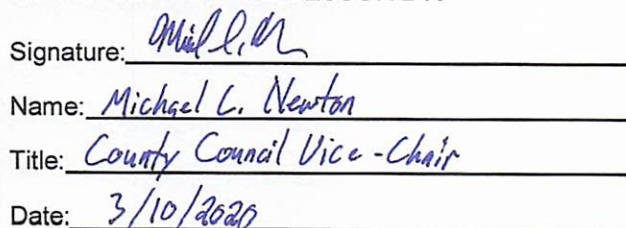 Signature:
Name: Michael C. Newton
Title: County Council Vice-Chair
Date: 3/10/2020